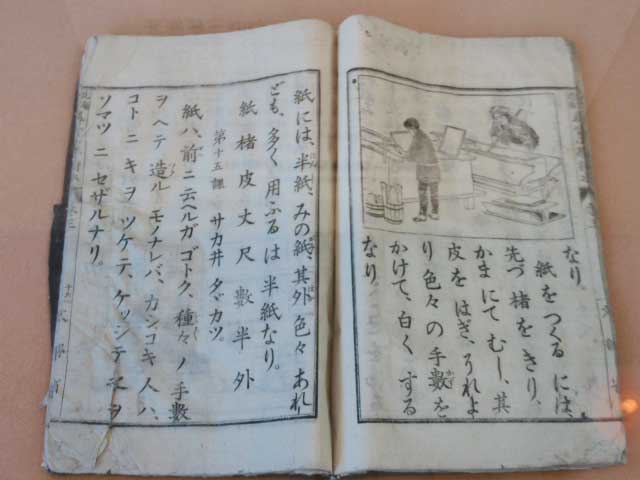 なり。
紙をつくるには、
先づ楮をきり、
かまにてむし、其
皮をはぎ、それよ
り色々の手數を
かけて、白くする
なり。
紙には、半紙、みの紙、其外色々あれ
ども、多く用ふるは半紙なり。
紙 楮 皮 丈 尺 數 半 外
第十五課 サカ井 タッカツ。
紙ハ、前ニ云ヘルガゴトク、種々ノ手數
ヲヘテ造ルモノナレバ、カシコキ人ハ、
コトニキヲツケテ、ケッシテ之ヲ
ソマツニセザルナリ。